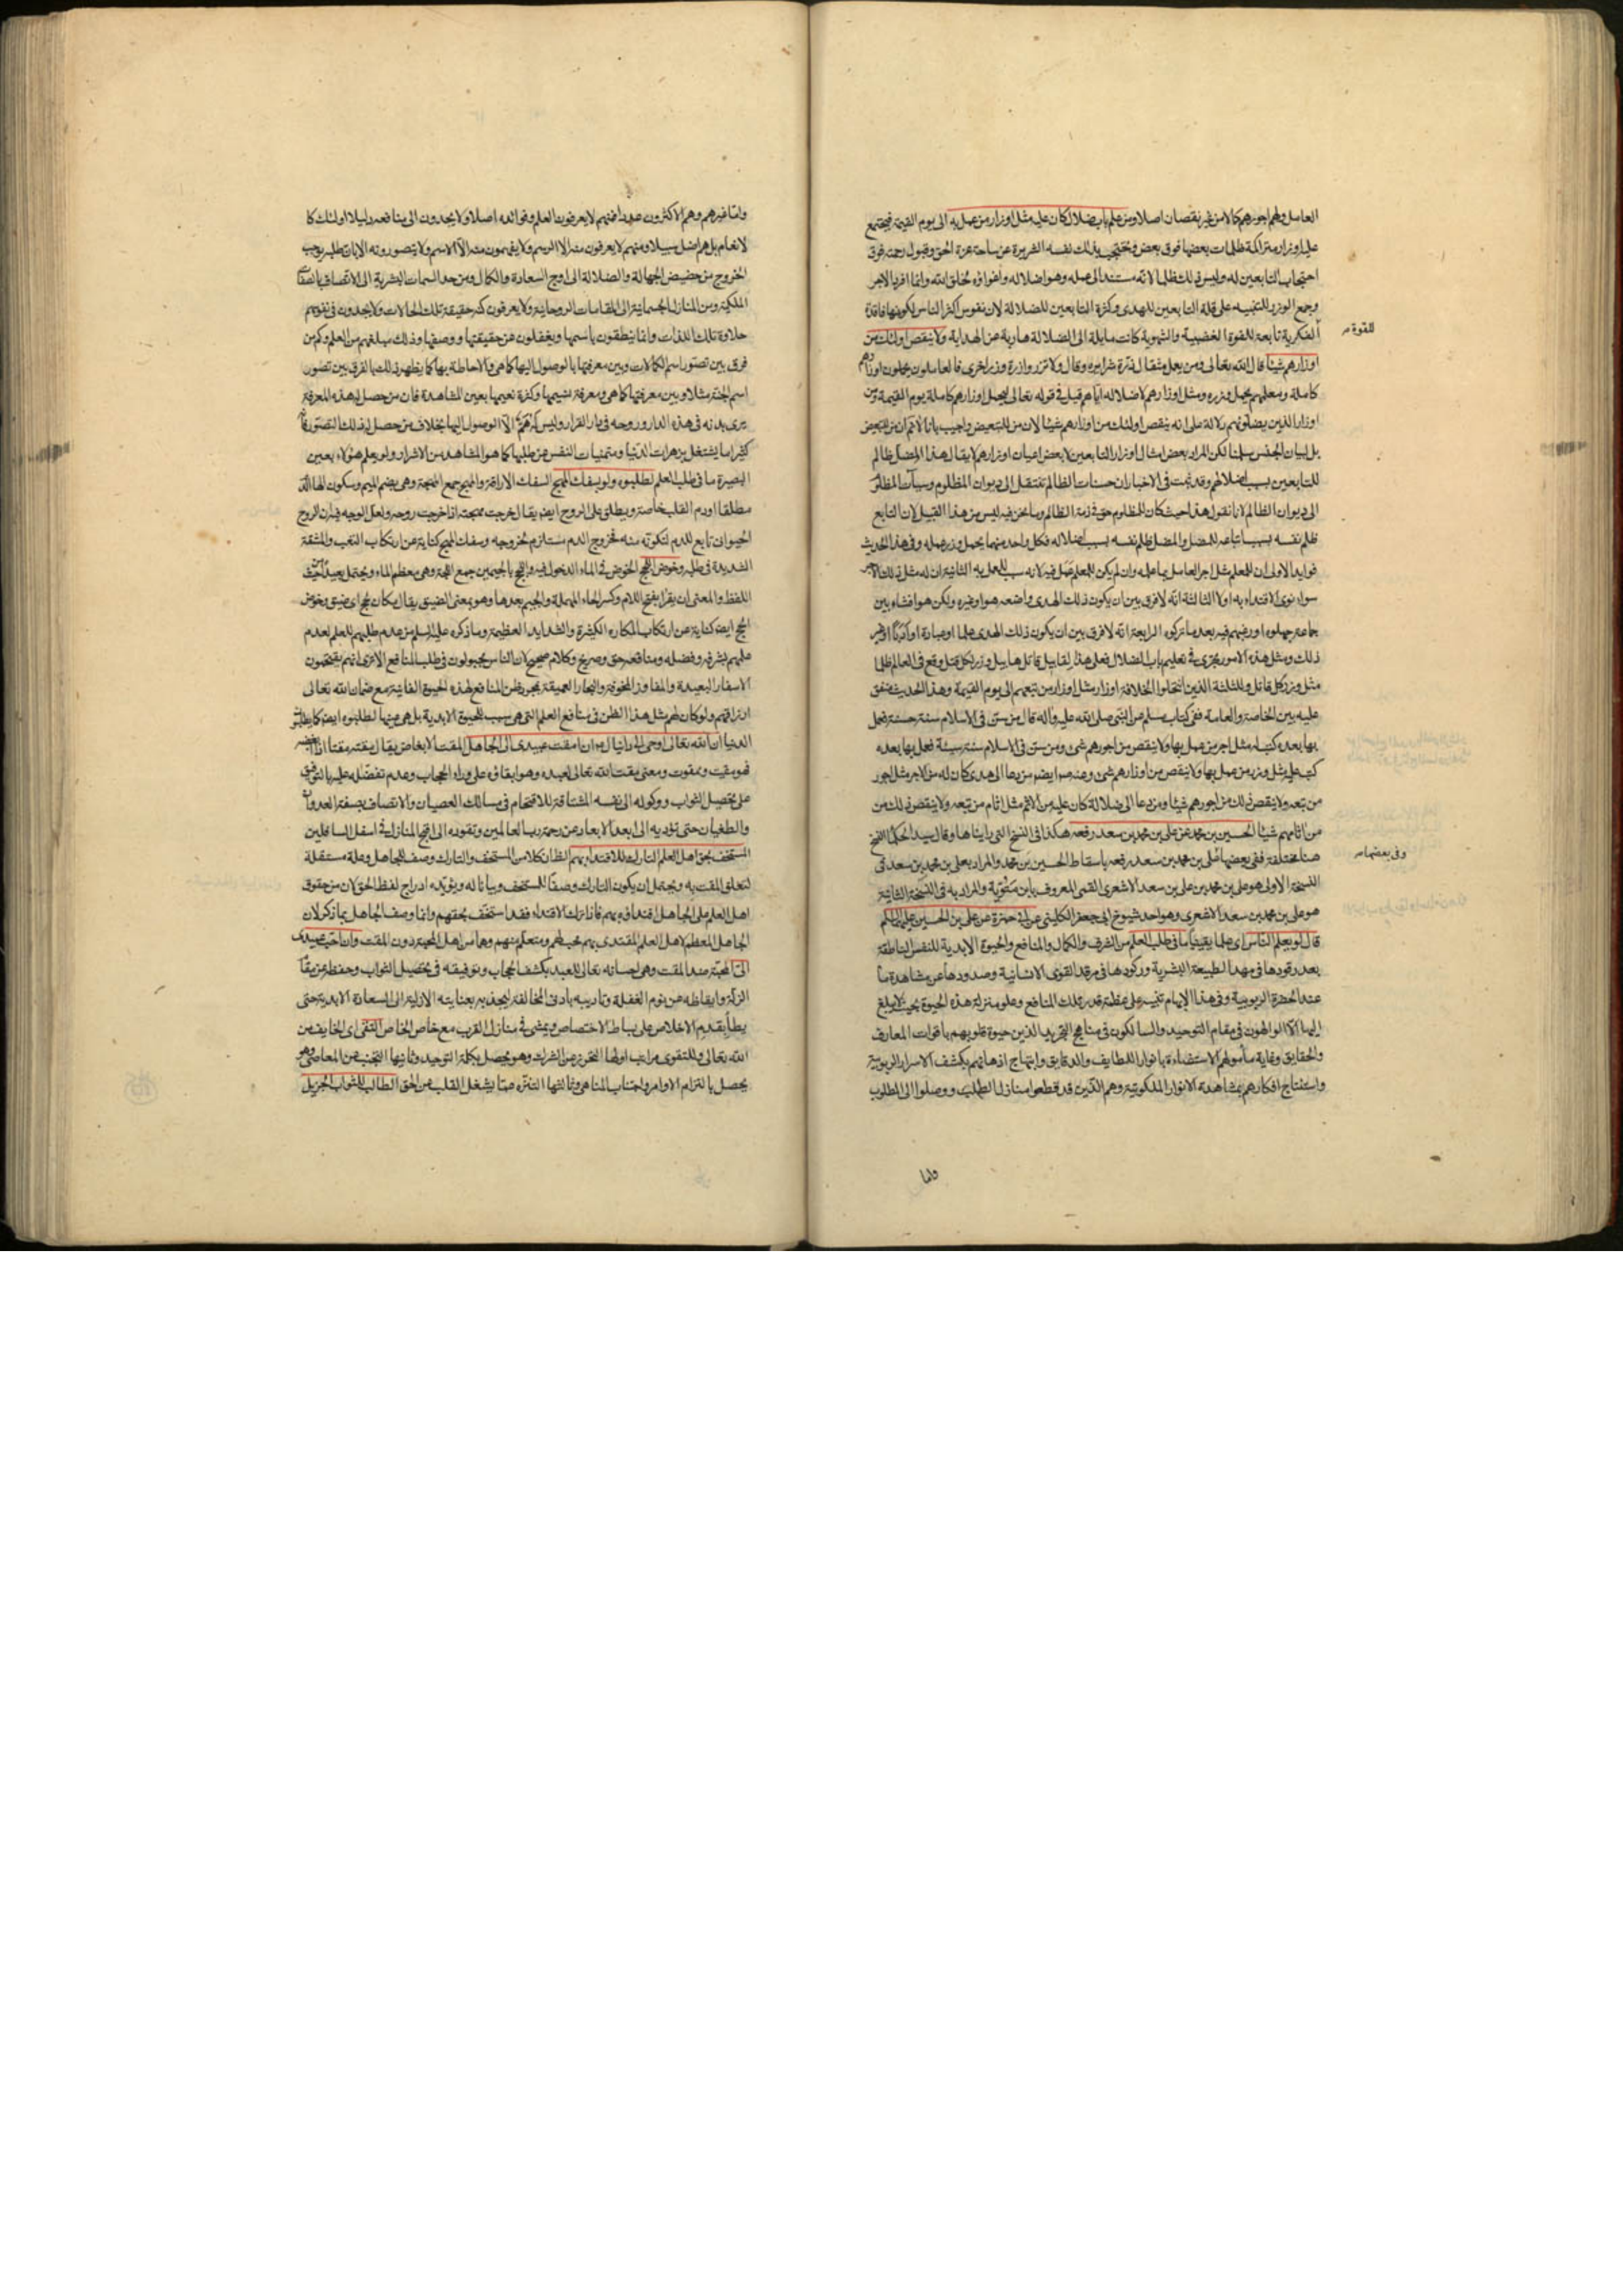 العامل ولهم اجورهم كاملا من غير نقصان اصلا ومن علم باب ضلال كان عليه مثل اوزار من عمل به الى يوم القيمة فيجتمع
عليه اوزار متراكمة ظلمات بعضها فوق بعض فتحتجب بذلك نفسه الشريرة عن ساحة عزة الحق وقبول رحمته فوق
احتجاب التابعين له وليس ذلك ظلما لانه مستند الى عمله وهو اضلاله واغواؤه لخلق الله وانما افرد الاجر
وجمع الوزر للتنبيه على قلة التابعين للهدى وكثرة التابعين للضلالة لان نفوس اكثر الناس لكونها فاقدة
للقوة
الفكرية تابعة للقوة الغضبية والشهوية كانت مايلة الى الضلالة هاربة عن الهداية ولا ينقص اولئك من
اوزارهم شيئا قال الله تعالى ومن يعمل مثقال ذرة شرا يره وقال ولا تزر وازرة وزر اخرى فالعاملون يحملون اوزارهم
كاملة ومعلمهم يحمل وزره ومثل اوزارهم لاضلاله اياهم قيل في قوله تعالى ليحملوا اوزارهم كاملة يوم القيمة ومن
اوزار الذين يضلونهم دلالة على انه ينقص اولئك من اوزارهم شيئا لان من للتبعيض واجيب بانا لانم ان من للتبعيض
بل لبيان الجنس سلمنا لكن المراد بعض امثال اوزار التابعين لا بعض اعيان اوزارهم لا يقال هذا المضل ظالم
للتابعين بسبب اضلالهم وقد ثبت في الاخبار ان حسنات الظالم تنتقل الى ديوان المظلوم وسيآت المظلوم
الى ديوان الظالم لانا نقول هذا حيث كان للمظلوم حق في ذمة الظالم وما نحن فيه ليس من هذا القبيل لان التابع
ظلم نفسه بسبب اتباعه للمضل والمضل ظلم نفسه بسبب اضلاله فكل واحد منهما يحمل وزر عمله وفي هذا الحديث
فوايد الاولى ان للمعلم مثل اجر العامل بما علمه وان لم يكن للمعلم عمل فيه لانه سبب للعمل به الثانية ان له مثل ذلك الاجر
سواء نوى الاقتداء به اولا الثالثة انه لا فرق بين ان يكون ذلك الهدى واضعه هو او غيره ولكن هو افشاه بين
جماعة جهلوه او رغبهم فيه بعد ما تركوه الرابعة انه لا فرق بين ان يكون ذلك الهدى علما او عبادة او ادبا او غير
ذلك ومثل هذه الامور يجرى في تعليم باب الضلال فعلى هذا لقابيل قاتل هابيل وزر لكل قتل وقع في العالم ظلما
مثل وزر كل قاتل وللثلثة الذين انتحلوا الخلافة اوزار مثل اوزار من تبعهم الى يوم القيمة وهذا الحديث متفق
عليه بين الخاصة والعامة ففي كتاب مسلم عن النبي صلى الله عليه وآله قال من سن في الاسلام سنة حسنة فعمل
بها بعده كتب له مثل اجر من عمل بها ولا ينقص من اجورهم شئ ومن سن في الاسلام سنة سيئة فعمل بها بعده
كتب عليه مثل وزر من عمل بها ولا ينقص من اوزارهم شئ وعنه ايضا من دعا الى هدى كان له من الاجر مثل اجور
من تبعه ولا ينقص ذلك من اجورهم شيئا ومن دعا الى ضلالة كان عليه من الاثم مثل اثام من تبعه ولا ينقص ذلك من
من اثامهم شيئا الحسين بن محمد عن علي بن محمد بن سعد رفعه هكذا في النسخ التي رايناها وقال سيد الحكماء النسخ
وفي بعضها
هنا مختلفة ففي بعضها علي بن محمد بن سعد رفعه باسقاط الحسين بن محمد والمراد بعلي بن محمد بن سعد في
النسخة الاولى هو علي بن محمد بن علي بن سعد الاشعري القمي المعروف بابن متويه والمراد به في النسخة الثانية
هو علي بن محمد بن سعد الاشعري وهو احد شيوخ ابي جعفر الكليني عن ابي حمزة عن علي بن الحسين عليهما السلم
قال لو يعلم الناس اي علما يقينيا ما في طلب العلم من الشرف والكمال والمنافع والحيوة الابدية للنفس الناطقة
بعد رقودها في مهد الطبيعة البشرية وركودها في مرقد القوى الانسانية وصدودها عن مشاهدة ما
عند الحضرة الربوبية وفي هذا الابهام تنبيه على عظمة قدر تلك المنافع وعلو منزلة هذه الحيوة بحيث لا يبلغ
اليها الا الوالهون في مقام التوحيد والسالكون في مناهج التجريد الذين حيوة قلوبهم باقوات المعارف
والحقايق وغاية مأمولهم الاستضاءة بانوار اللطايف والدقايق وابتهاج اذهانهم بكشف الاسرار الربوبية
واستنتاج افكارهم بمشاهدة الانوار الملكوتية وهم الذين قد قطعوا منازل الطلب ووصلوا الى المطلوب
واما
واما غيرهم وهم الاكثرون عددا فمنهم لا يعرفون العلم وفوائده اصلا ولا يجدون الى منافعه دليلا اولئك كا
لانعام بل هم اضل سبيلا ومنهم لا يعرفون منه الا الرسم ولا يفهمون منه الا الاسم ولا يتصورونه الا بان طلبه يوجب
الخروج من حضيض الجهالة والضلالة الى اوج السعادة والكمال ومن حد السمات البشرية الى الاتصاف بالصفات
الملكية ومن المنازل الجسمانية الى المقامات الروحانية ولا يعرفون كنه حقيقة تلك الحالات ولا يجدون في نفوسهم
حلاوة تلك اللذات وانما ينطقون باسمها ويغفلون عن حقيقتها ووصفها وذلك مبلغهم من العلم وكم من
فرق بين تصور اسم الكمالات وبين معرفتها بالوصول اليها كما هي والاحاطة بها كما يظهر ذلك بالفرق بين تصور
اسم الجنة مثلا وبين معرفتها كما هي ومعرفة نسيمها وكثرة نعيمها بعين المشاهدة فان من حصل له هذه المعرفة
يرى بدنه في هذه الدار وروحه في دار القرار وليس له هم الا الوصول اليها بخلاف من حصل له ذلك التصور فانه
كثيرا ما يشتغل بزهرات الدنيا ومتمنيات النفس عن طلبها كما هو المشاهد من الاشرار ولو يعلم هؤلاء بعين
البصيرة ما في طلب العلم لطلبوه ولو بسفك المهج السفك الاراقة والمهج جمع المهجة وهي بضم الميم وسكون الهاء الدم
مطلقا او دم القلب خاصة ويطلق على الروح ايضا يقال خرجت مهجته اذا خرجت روحه ولعل الوجه فيه ان الروح
الحيوان تابع للدم لتكونه منه فخروج الدم مستلزم لخروجه وسفك المهج كناية عن ارتكاب التعب والمشقة
الشديدة في طلبه وخوض اللجج الخوض في الماء الدخول فيه واللجج بالجيمين جمع اللجة وهي معظم الماء ويحتمل بعيدا من حيث
اللفظ والمعنى ان يقرأ بفتح اللام وكسر الحاء المهملة والجيم بعدها وهو بمعنى الضيق يقال مكان لحج اي ضيق وخوض
اللجج ايضا كناية عن ارتكاب المكاره الكثيرة والشدايد العظيمة وما ذكره عليه السلم من عدم طلبهم للعلم لعدم
علمهم بشرفه وفضله ومنافعه حق وصريح وكلام صحيح لان الناس مجبولون في طلب المنافع الا ترى انهم يقتحمون
الاسفار البعيدة والمفاوز المخوفة والبحار العميقة بمجرد ظن المنافع لهذه الحيوة الفانية مع ضمان الله تعالى
ارزاقهم ولو كان لهم مثل هذا الظن في منافع العلم التي هي سبب للحيوة الابدية بل هي عينها لطلبوه ايضا كما يطلبون
الدنيا ان الله تعالى اوحى الى دانيال ان امقت عبيدي الى الجاهل المقت الابغاض يقال مقته مقتا اذا ابغضه
فهو مقيت وممقوت ومعنى مقت الله تعالى لعبده هو ابقاؤه على وراء الحجاب وعدم تفضله عليه بالتوفيق
على تحصيل الثواب ووكوله الى نفسه المشتاقة للاقتحام في مسالك العصيان والاتصاف بصفة العدوان
والطغيان حتى تؤديه الى ابعد الابعاد عن رحمة رب العالمين وتقوده الى اقبح المنازل في اسفل السافلين
المستخف بحق اهل العلم التارك للاقتداء بهم الظ ان كلا من المستخف والتارك وصف للجاهل وعلة مستقلة
لتعلق المقت به ويحتمل ان يكون التارك وصفا للمستخف وبيانا له ويؤيده ادراج لفظ الحق لان من حقوق
اهل العلم على الجاهل اقتداؤه بهم فاذا ترك الاقتداء فقد استخف بحقهم وانما وصف الجاهل بما ذكر لان
الجاهل المعظم لاهل العلم المقتدى بهم محبهم ومتعلم منهم وهما من اهل المحبة دون المقت وان احب عبيدي
الي المحبة ضد المقت وهي احسانه تعالى للعبد بكشف الحجاب وتوفيقه في تحصيل الثواب وحفظه عن يقا
الزلة وايقاظه عن نوم الغفلة وتأديبه بادنى المخالفة ليجذبه بعنايته الازلية الى السعادة الابدية حتى
يطأ بقدم الاخلاص على بساط الاختصاص ويمشى في منازل القرب مع خاص الخاص التقي اي الخايف من
الله تعالى وللتقوى مراتب اولها التحرز عن الشرك وهو يحصل بكلمة التوحيد وثانيها التجنب عن المعاصي وهو
يحصل بالتزام الاوامر واجتناب المناهي وثالثها التنزه عما يشغل القلب عن الحق الطالب للثواب الجزيل